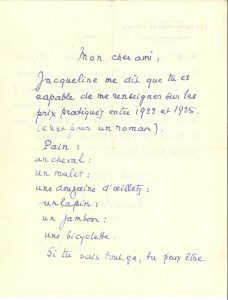 Mon cher ami,
Jacqueline me dit que tu es
capable de me renseigner sur les
prix pratiqués entre 1922 et 1925.
(c'est pour un roman).
Pain :
un cheval :
un mulet :
une douzaine d'œillets :
un lapin :
un jambon :
une bicyclette :
Si tu sais tout ça, tu peux être